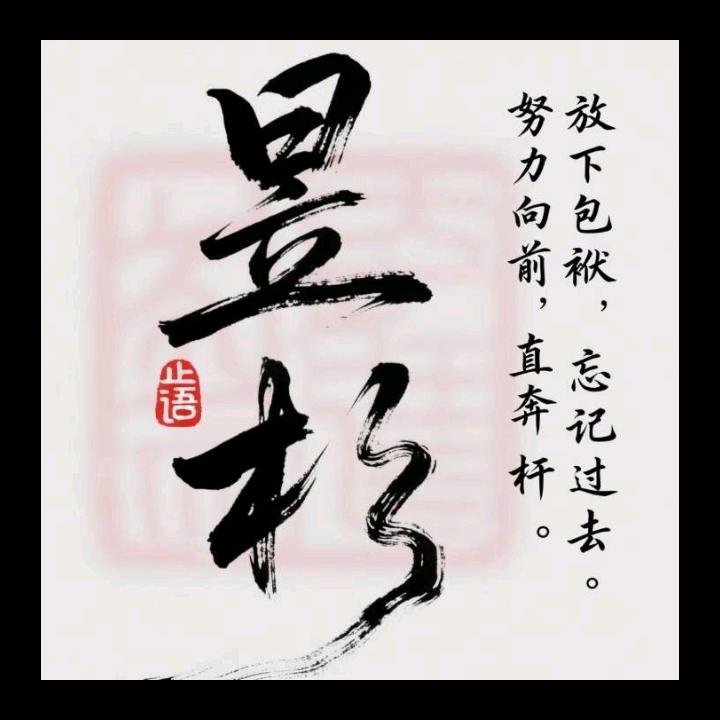 放下包袱，忘记过去。
努力向前，直奔杆。
昱杉
止语